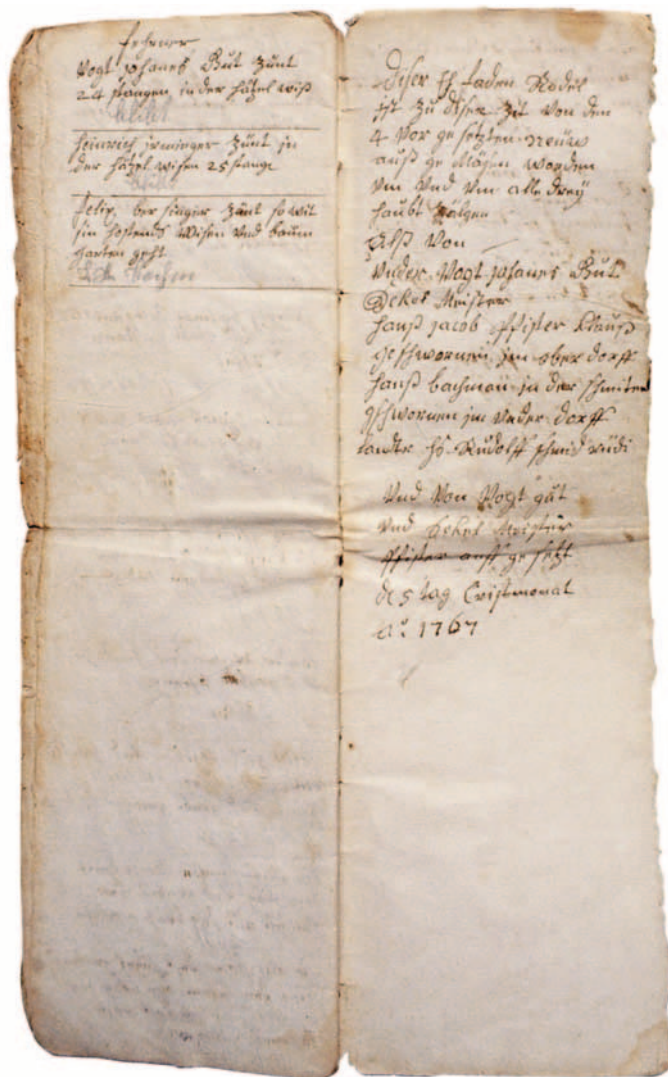 fehrner
Vogt johanes Gut Zünt
24 stangen in der hätzel wiß
bleibt
heinrich irminger Zünt in
der hätzel wisen 25 stang
bleibt
felix ber singer Zünt so wit
sin wisen und baum
garten geht
Diser Eh faden Rodel
ist zu diser Zit von den
4 vor ge setzten neüw
auß ge worden
um und um alle dreÿ
haubt Zälgen
Alß von
under Vogt johanes Gut
Sekel Meister
hanß jacob pfister
geschwornen im ober dorff
hanß bachman in der schmiten
gschwornen im under dorff
Rudolff schmid
Und Von Vogt gut
und sekel Meister
pfister auff ge setzt
de 5 tag Cristmonat
a° 1767